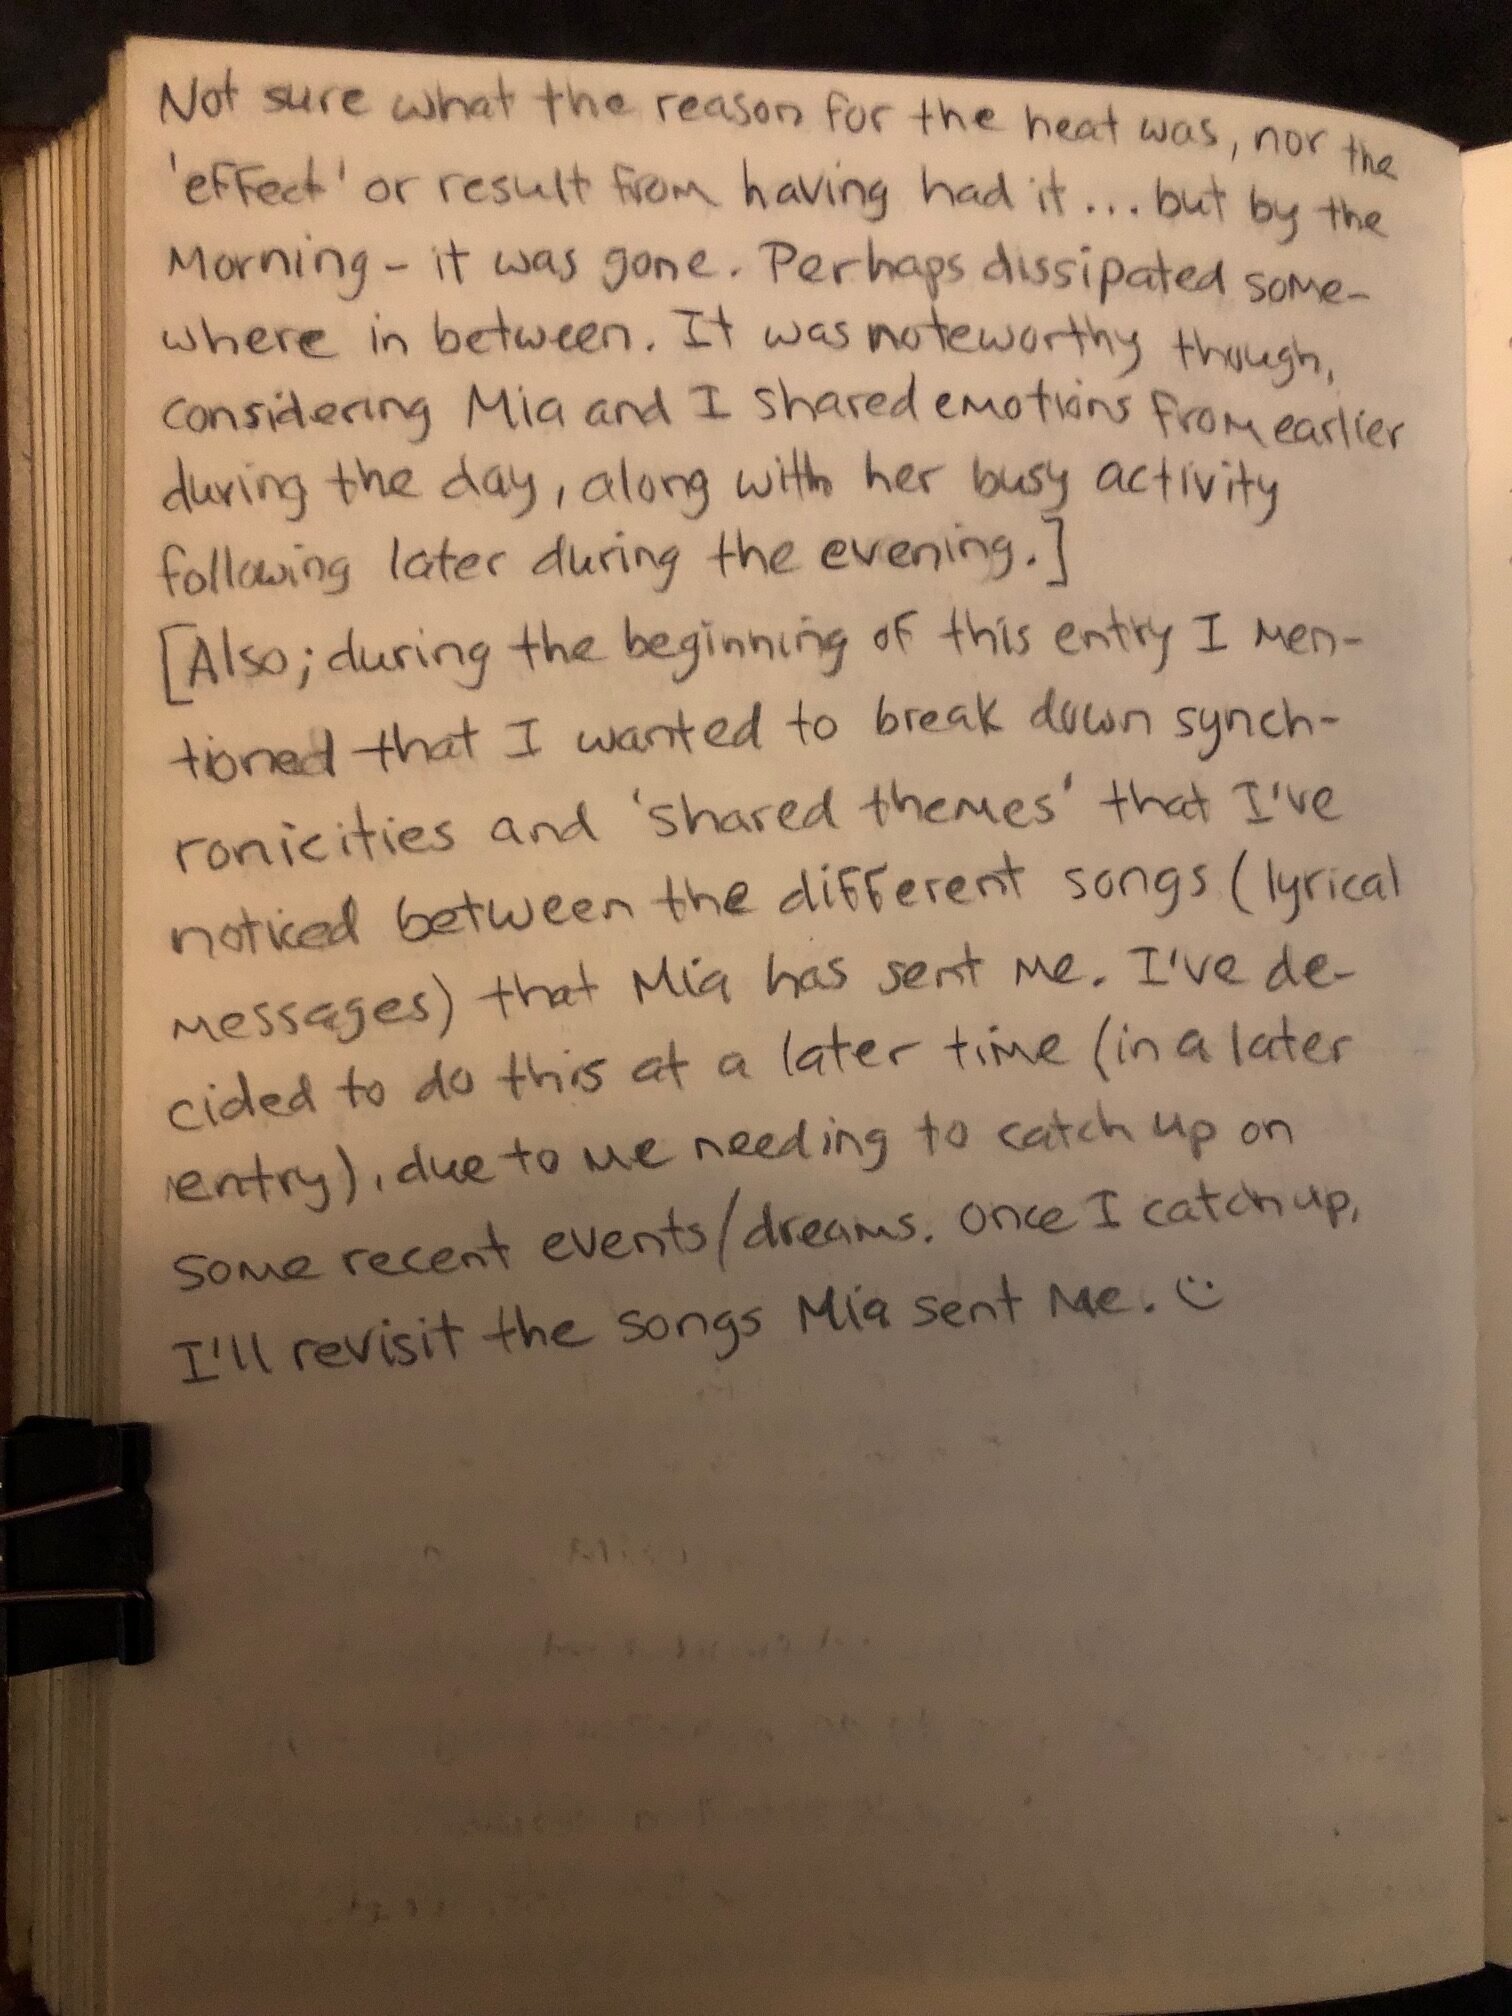 Not sure what the reason for the heat was, nor the
'effect' or result from having had it... but by the
Morning - it was gone. Perhaps dissipated some-
where in between. It was noteworthy though,
considering Mia and I shared emotions from earlier
during the day, along with her busy activity
following later during the evening.]
[Also; during the beginning of this entry I men-
tioned that I wanted to break down synch-
ronicities and 'shared themes' that I've
noticed between the different songs (lyrical
messages) that Mia has sent me. I've de-
cided to do this at a later time (in a later
entry), due to me needing to catch up on
some recent events/dreams. Once I catch up,
I'll revisit the songs Mia sent me. :)